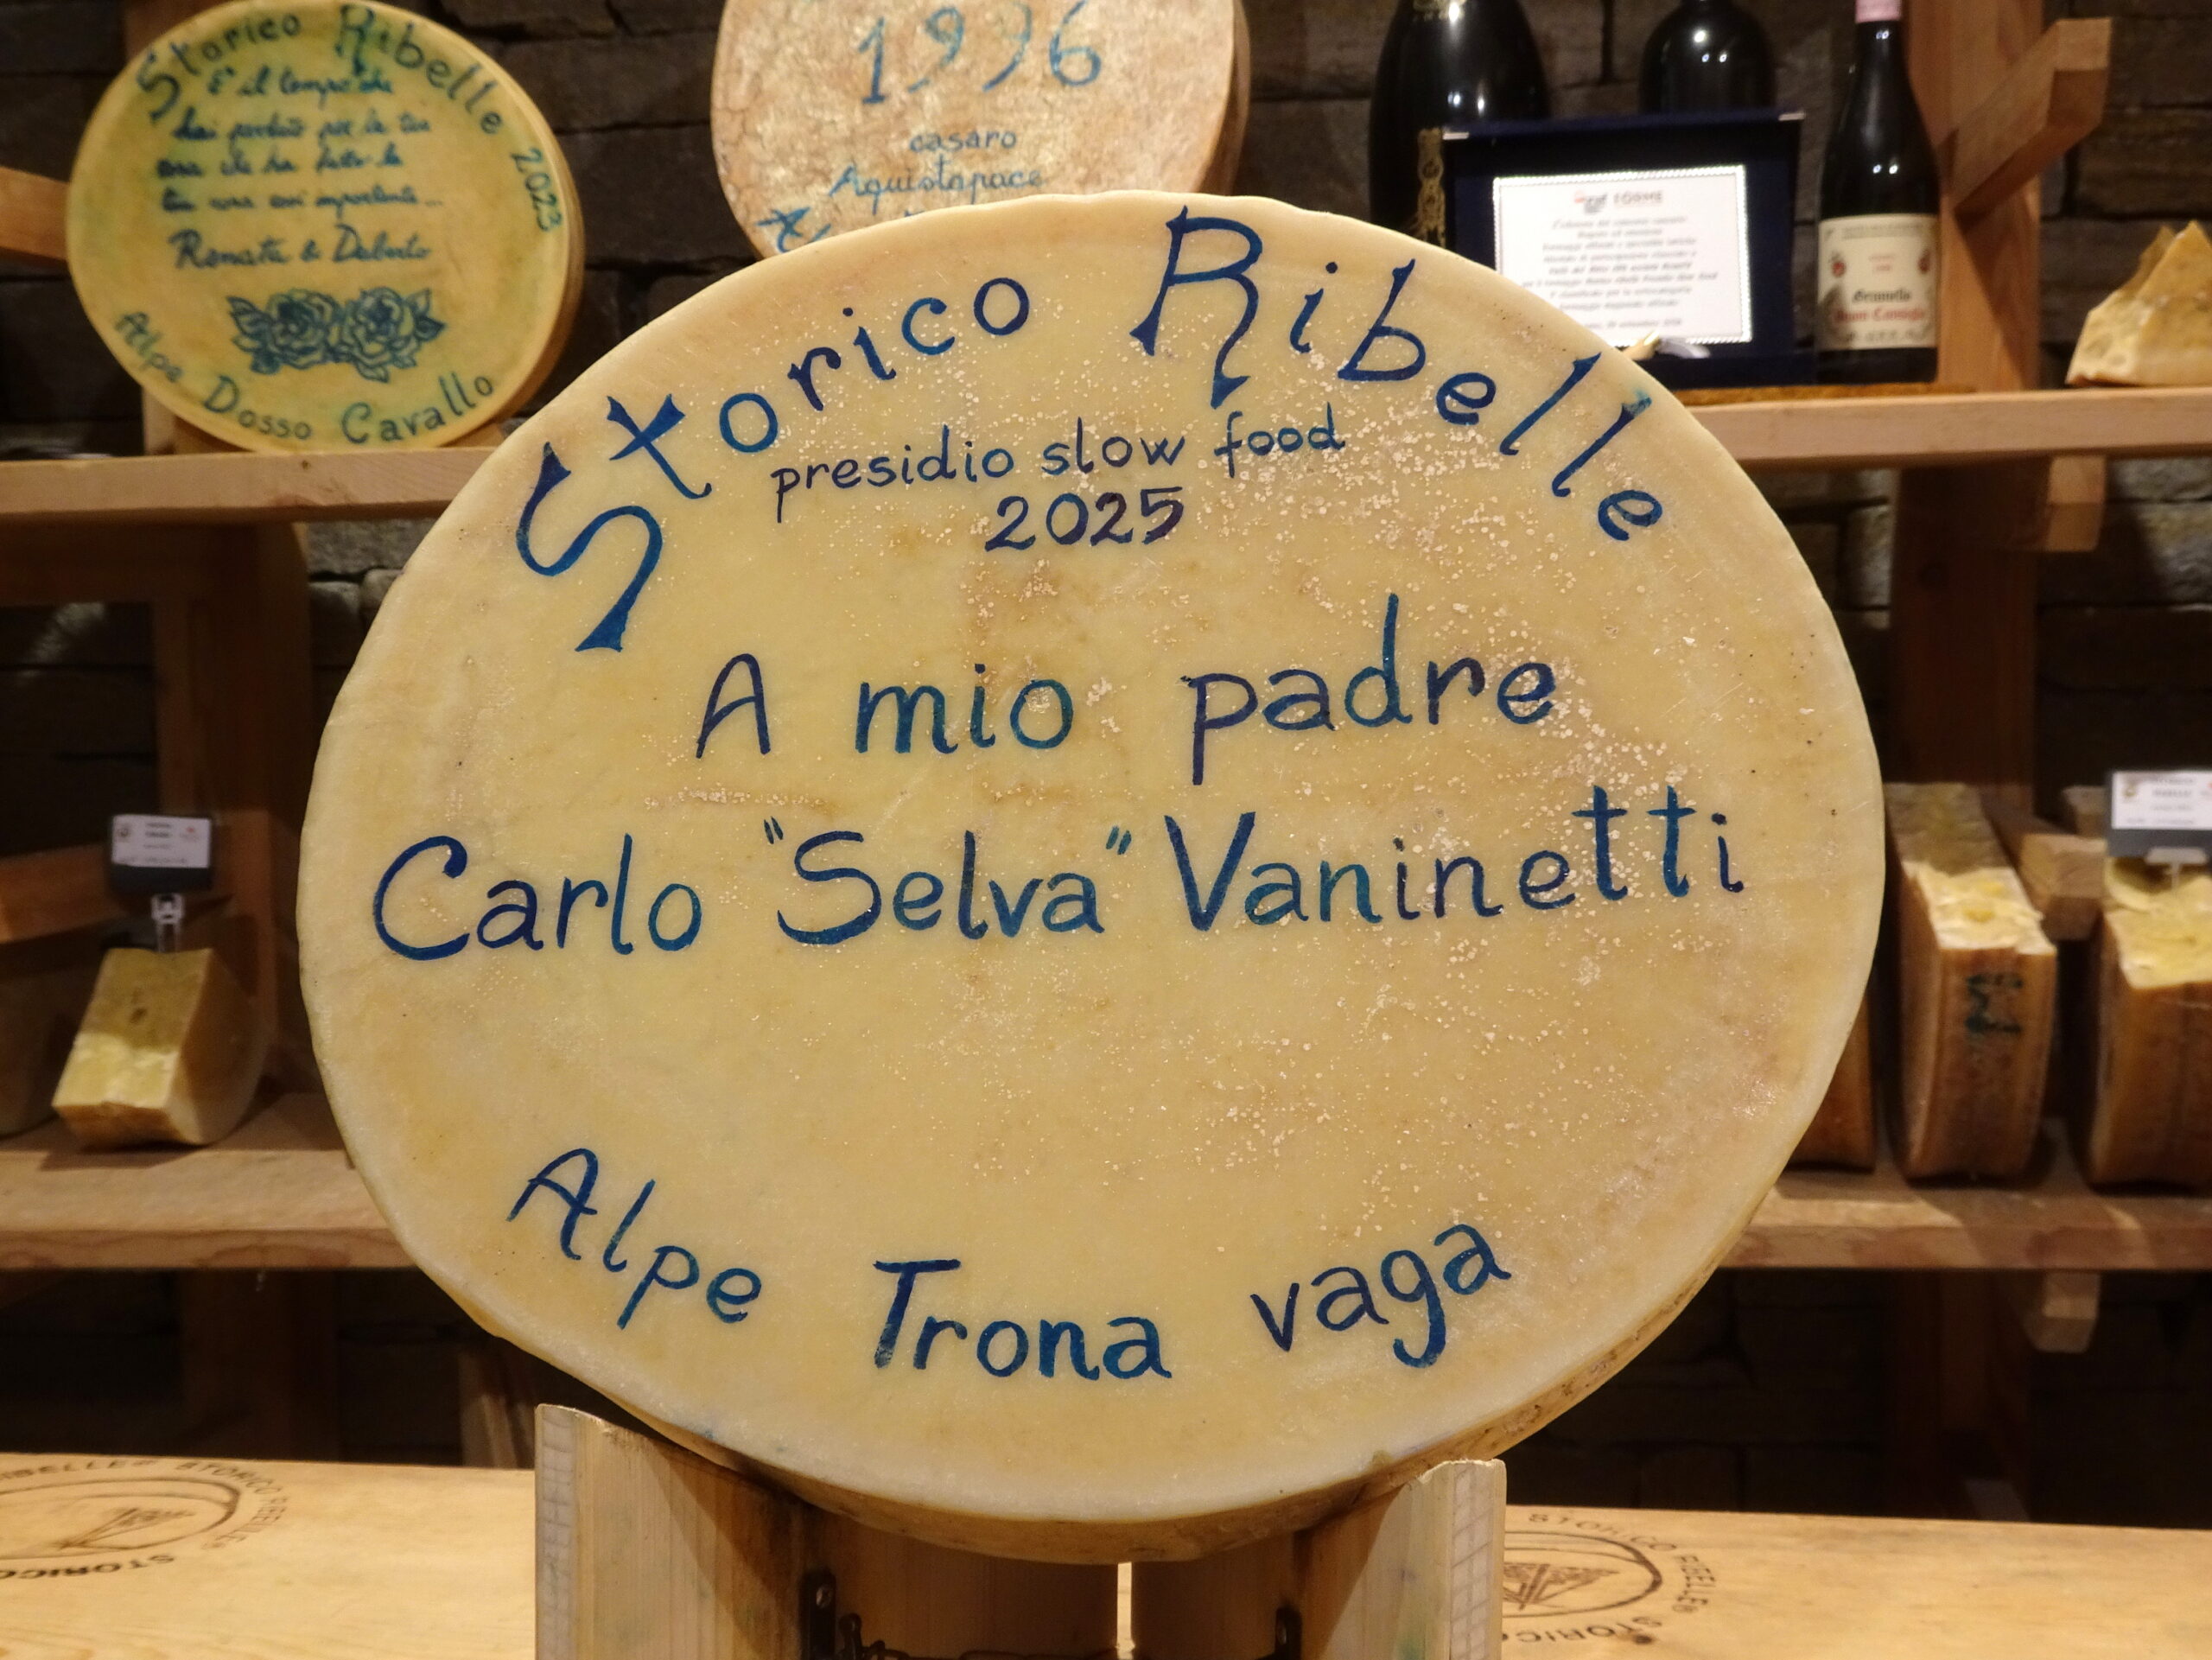 Storico Ribelle 2023
E' il tempo che
hai perduto per la tua
rosa che ha fatto la
tua rosa così importante...
Renata & Dalberto
Alpe Dosso Cavallo
1996
casaro
Aquistapace
Storico Ribelle
presidio slow food
2025
A mio padre
Carlo "Selva" Vaninetti
Alpe Trona vaga
Grumello
STORICO RIBELLE®
STORICO
STORICO RIBELLE®
STORICO